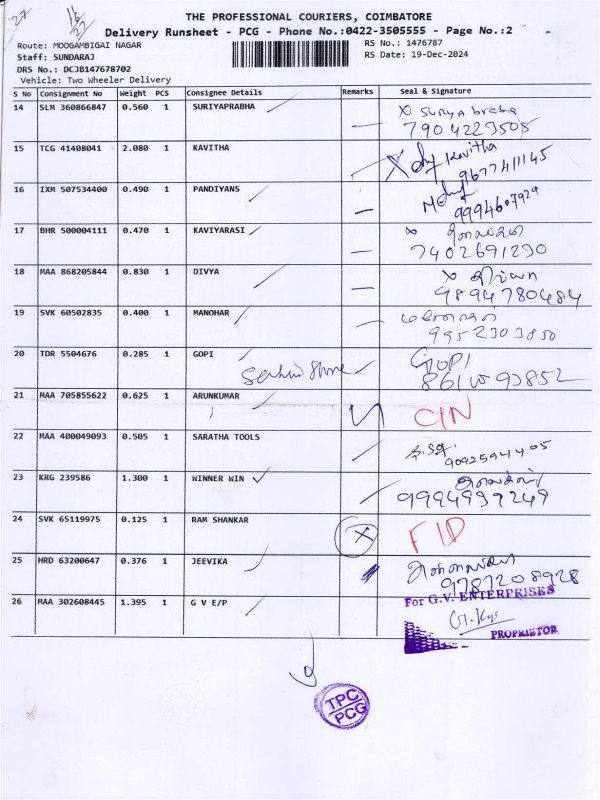 THE PROFESSIONAL COURIERS, COIMBATORE
Delivery Runsheet - PCG - Phone No.:0422-3505555 - Page No.:2
Route: MOOGAMBIGAI NAGAR RS No.: 1476787
Staff: SUNDARAJ RS Date: 19-Dec-2024
DRS No.: DCJB147678702
Vehicle: Two Wheeler Delivery
S No Consignment No Weight PCS Consignee Details Remarks Seal & Signature
14 SLM 360866847 0.560 1 SURIYAPRABHA
7904223505
15 TCG 41408041 2.080 1 KAVITHA Kavitha
9677411145
16 IXM 507534400 0.490 1 PANDIYANS
9994607929
17 BHR 500004111 0.470 1 KAVIYARASI
7402691290
18 MAA 868205844 0.830 1 DIVYA
9894780484
19 SVK 60502835 0.400 1 MANOHAR
9952303850
20 TDR 5504676 0.285 1 GOPI GOPI
21 MAA 705855622 0.625 1 ARUNKUMAR CIN
22 MAA 400049093 0.505 1 SARATHA TOOLS
9092594405
23 KRG 239586 1.300 1 WINNER WIN
9994939249
24 SVK 65119975 0.125 1 RAM SHANKAR FID
25 HRD 63200647 0.376 1 JEEVIKA
9787208928
26 MAA 302608445 1.395 1 G V E/P
For G.V. ENTERPRISES
PROPRIETOR
TPC
PCG